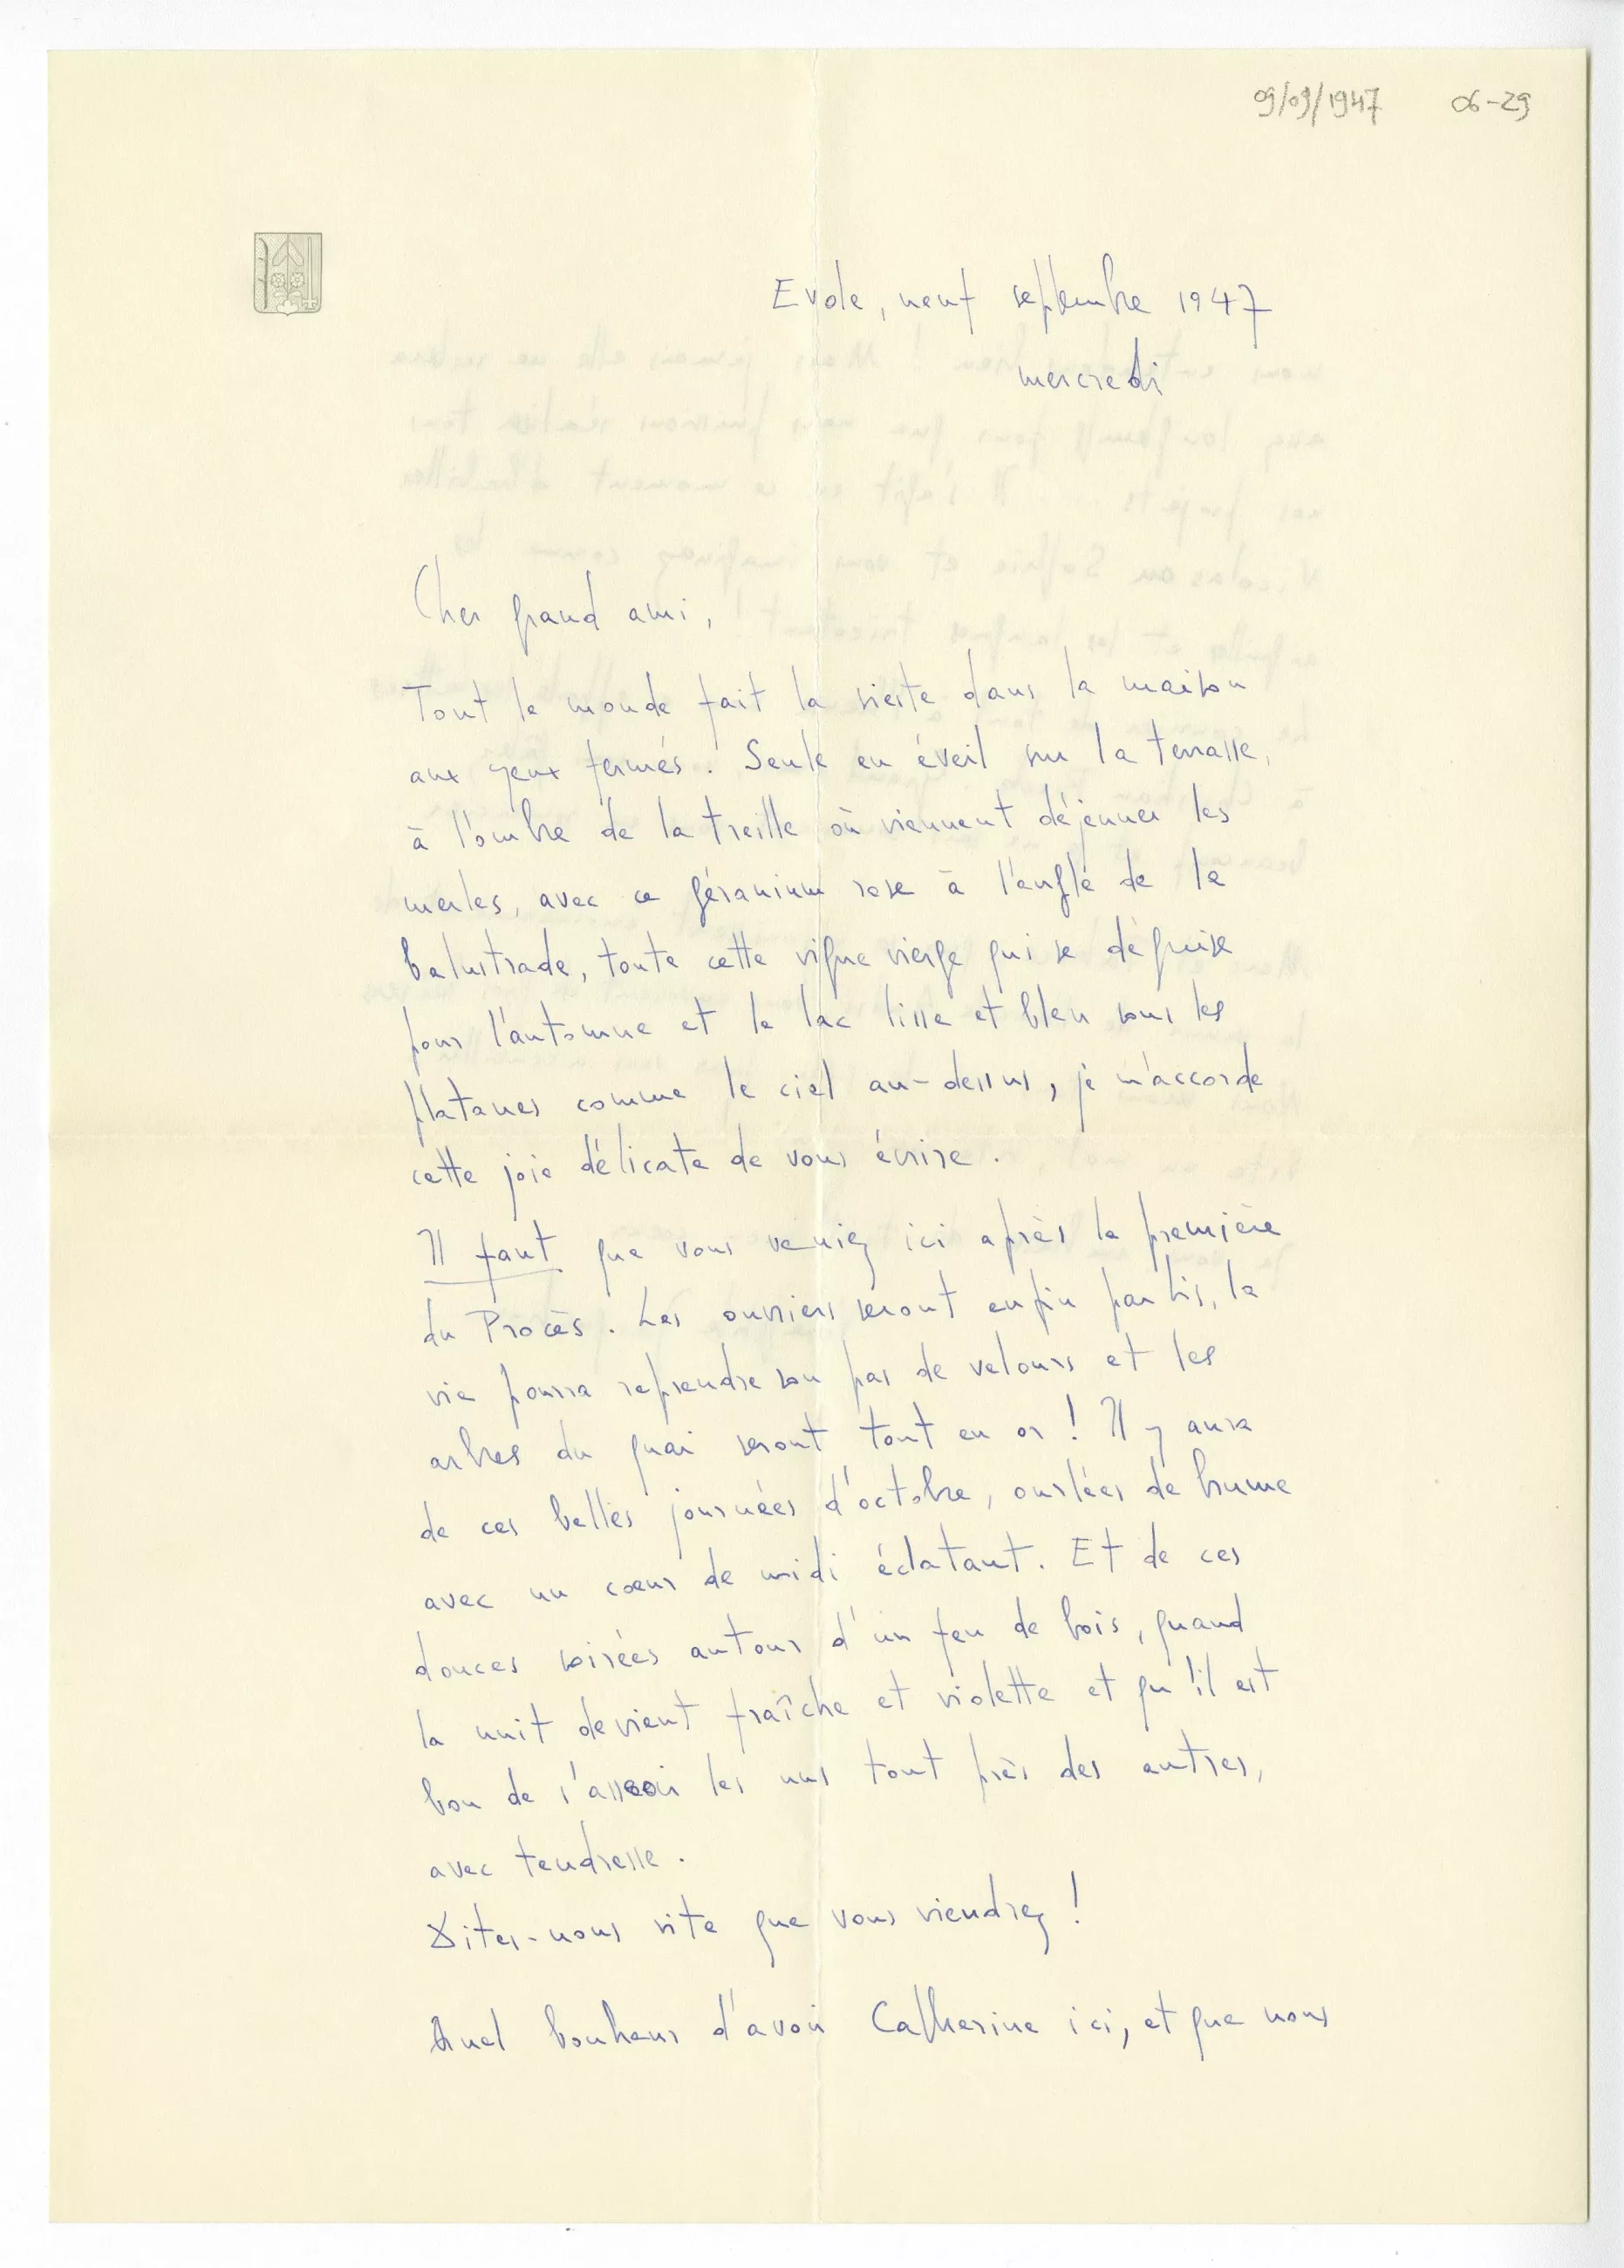 09/09/1947 06-29
Evole, neuf septembre 1947
mercredi
Cher grand ami,
Tout le monde fait la sieste dans la maison
aux yeux fermés. Seule en éveil sur la terrasse,
à l'ombre de la treille où viennent déjeuner les
merles, avec ce géranium rose à l'angle de la
balustrade, toute cette vigne vierge qui se déguise
pour l'automne et le lac lisse et bleu sous les
platanes comme le ciel au-dessus, je m'accorde
cette joie délicate de vous écrire.
Il faut que vous veniez ici après la première
du Procès. Les ouvriers seront enfin partis, la
vie pourra reprendre son pas de velours et les
arbres du quai seront tout en or ! Il y aura
de ces belles journées d'octobre, ourlées de brume
avec un cœur de midi éclatant. Et de ces
douces soirées autour d'un feu de bois, quand
la nuit devient fraîche et violette et qu'il est
bon de s'asseoir les uns tout près des autres,
avec tendresse.
Dites-nous vite que vous viendrez !
Quel bonheur d'avoir Catherine ici, et que nous